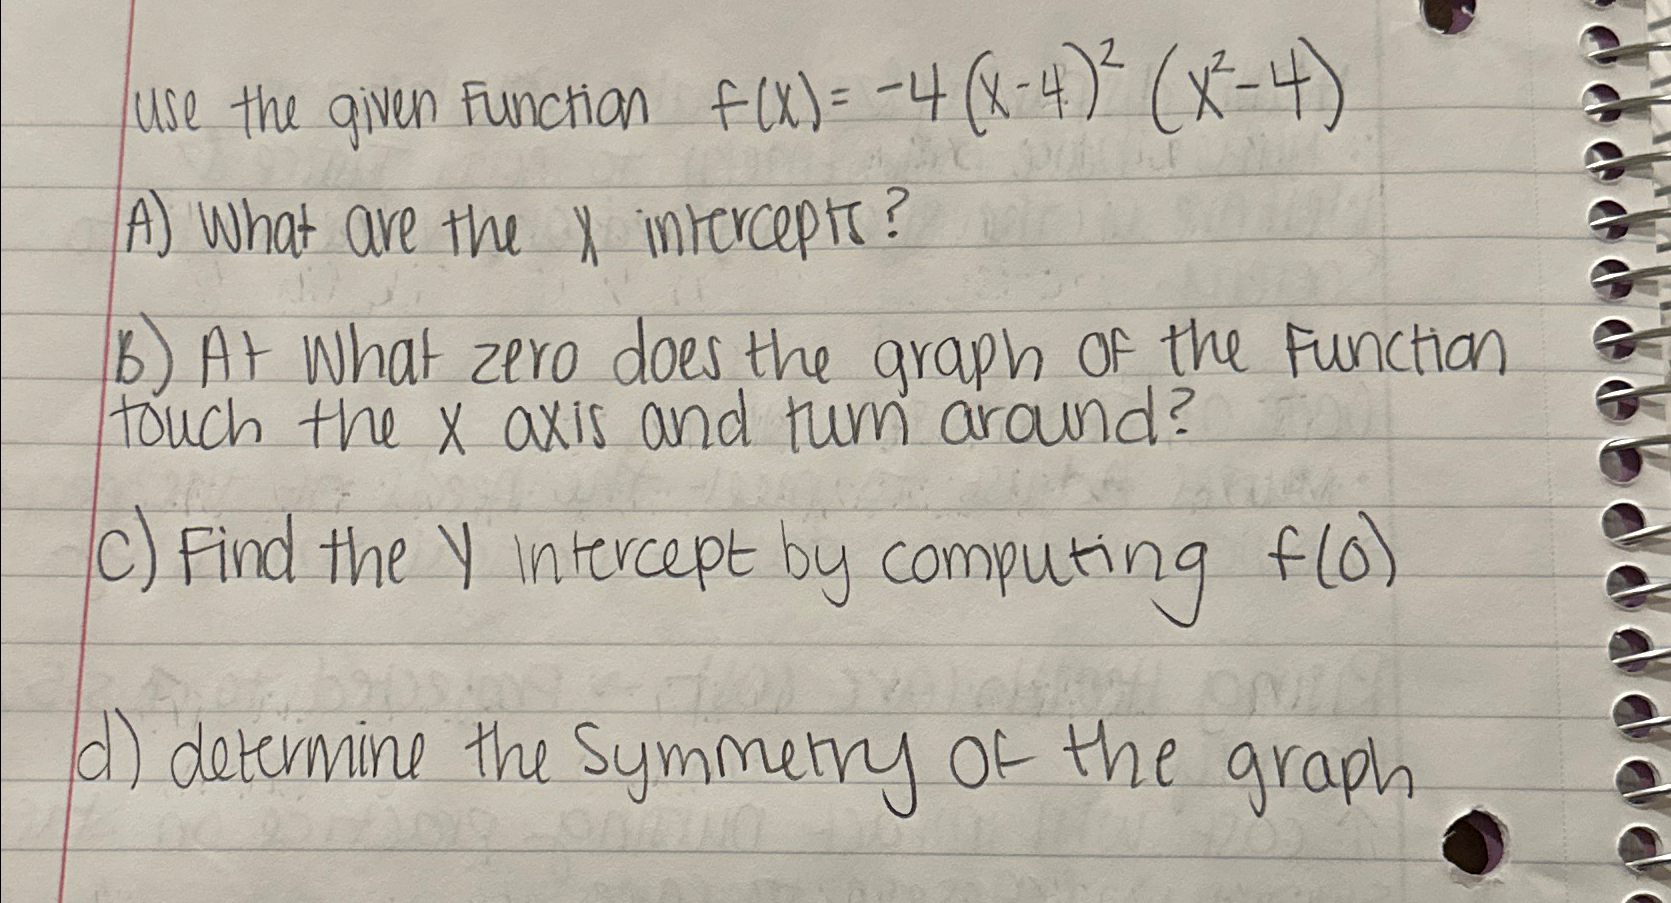 use the given Function f(x) = -4 (x-4)² (x²-4)
A) What are the x intercepts?
B) At What zero does the graph of the Function
touch the x axis and turn around?
c) Find the y intercept by computing f(0)
d) determine the symmetry of the graph